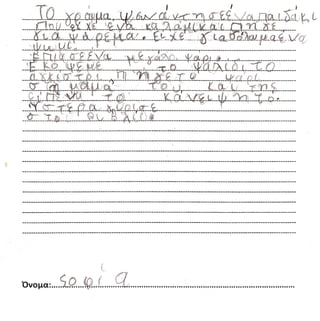 Το γράμμα ψ συνάντησε ένα παιδάκι
που είχε ένα καλάμι και πήγε
για ψάρεμα. είχε για δόλωμα ένα
ψωμί.
Έπιασε ένα μεγάλο ψάρι.
Έκοψε με το ψαλίδι το
αγκίστρι. πήγε το ψάρι
στη μαμά του και της
είπε να το κάνει ψητό.
Ύστερα γύρισε
στο βιβλίο
Όνομα: Σοφία